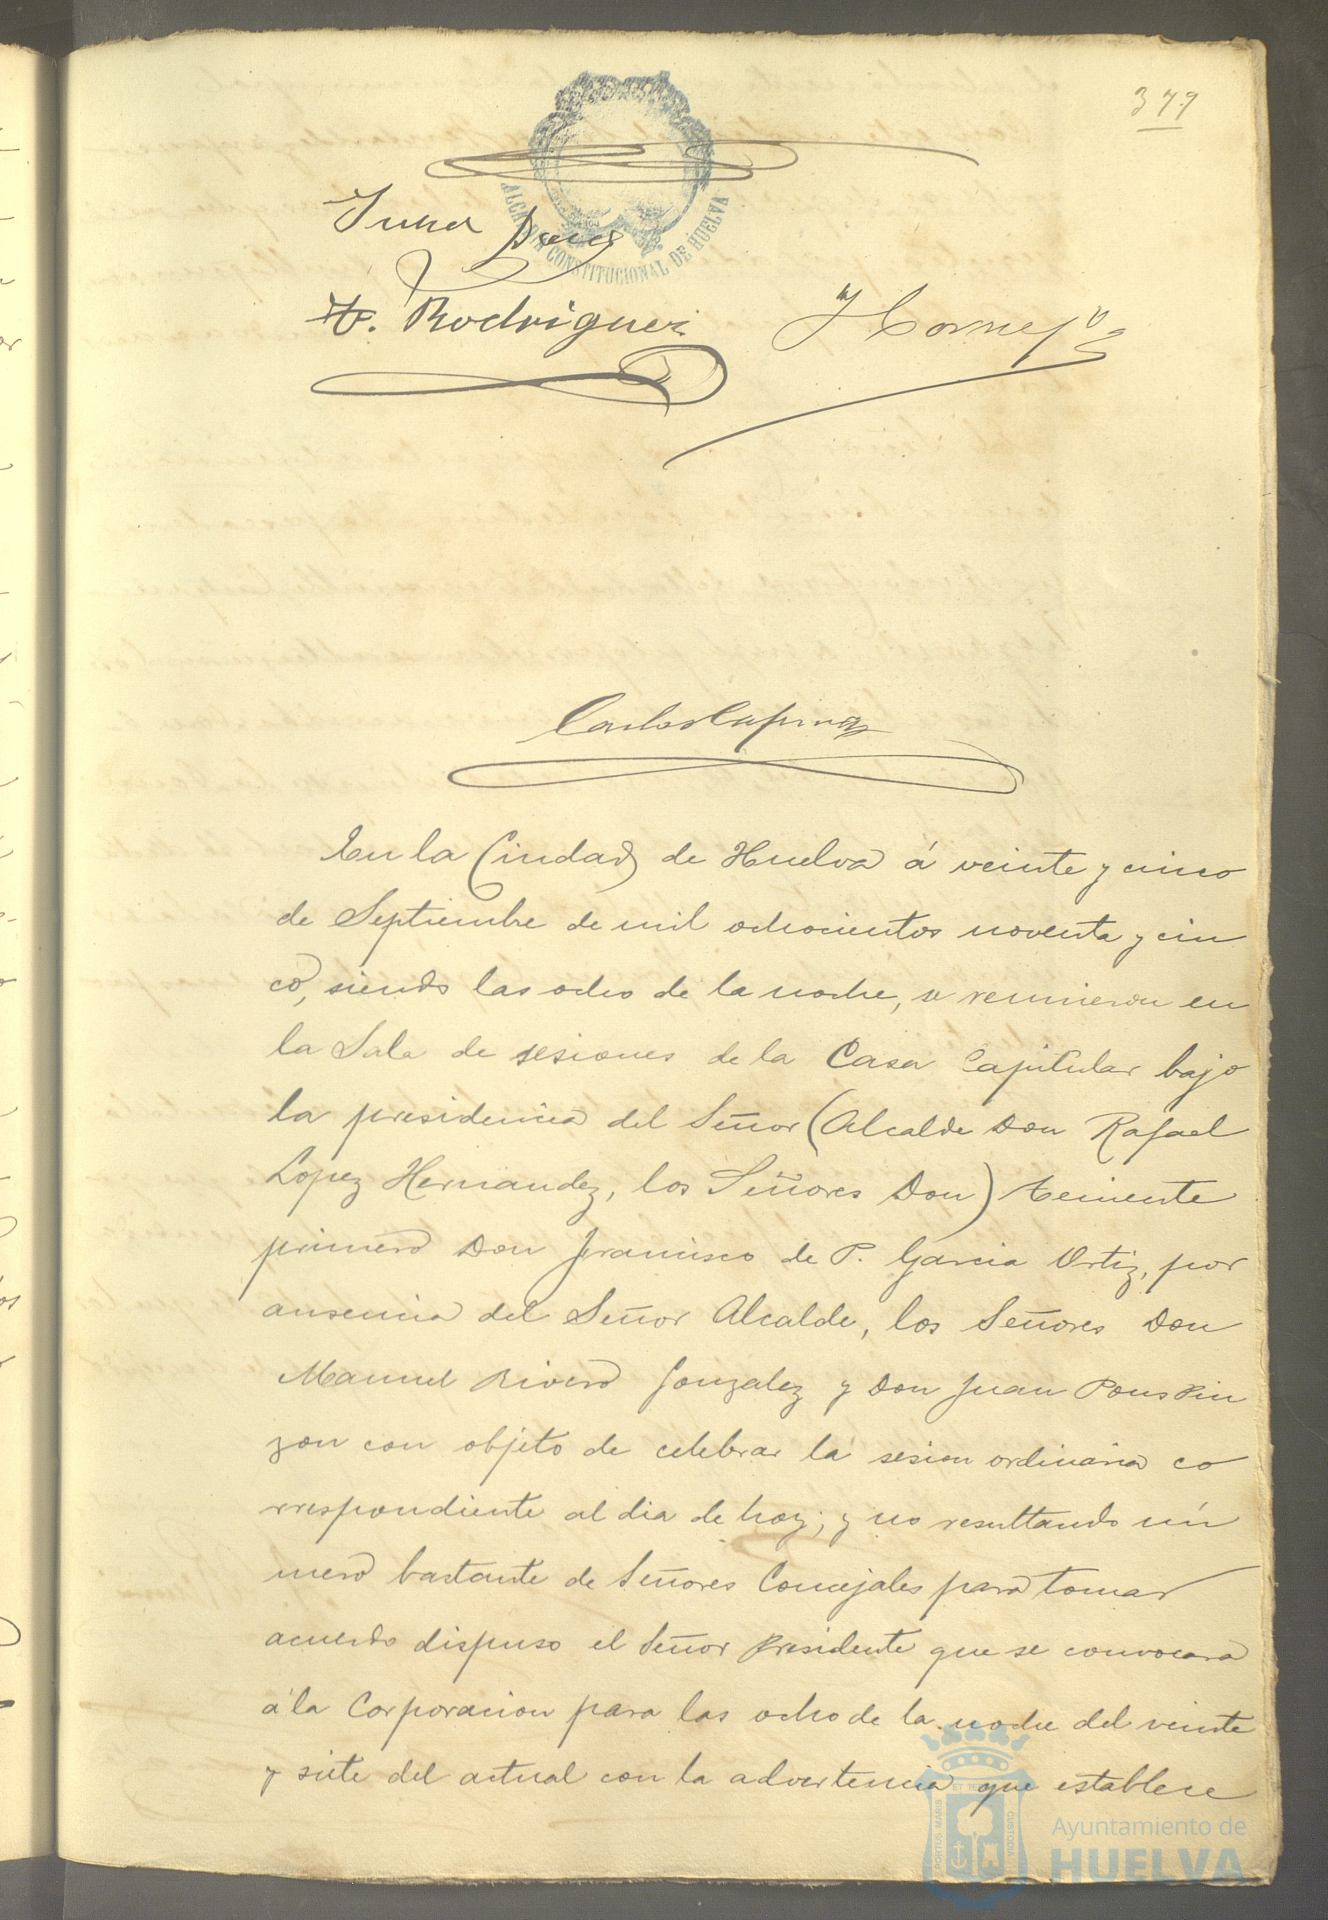 379
ALCALDIA CONSTITUCIONAL DE HUELVA
Rodriguez
En la Ciudad de Huelva á veinte y cinco
de Septiembre de mil ochocientos noventa y cin
co, siendo las ocho de la noche, se reunieron en
la Sala de sesiones de la Casa Capitular bajo
la presidencia del Señor (Alcalde Don Rafael
Lopez Hernandez, los Señores Don) teniente
primero Don Francisco de P. Garcia Ortiz, por
ausencia del Señor Alcalde, los Señores Don
Manuel Rivero Gonzalez y Don Juan Pons Pin
zon con objeto de celebrar la sesion ordinaria co
rrespondiente al dia de hoy; y no resultando nú
mero bastante de Señores Concejales para tomar
acuerdo dispuso el Señor Presidente que se convocara
á la Corporacion para las ocho de la noche del veinte
y siete del actual con la advertencia que establece
PORTUS MARIS ET TERRÆ CUSTODIA
Ayuntamiento de
HUELVA